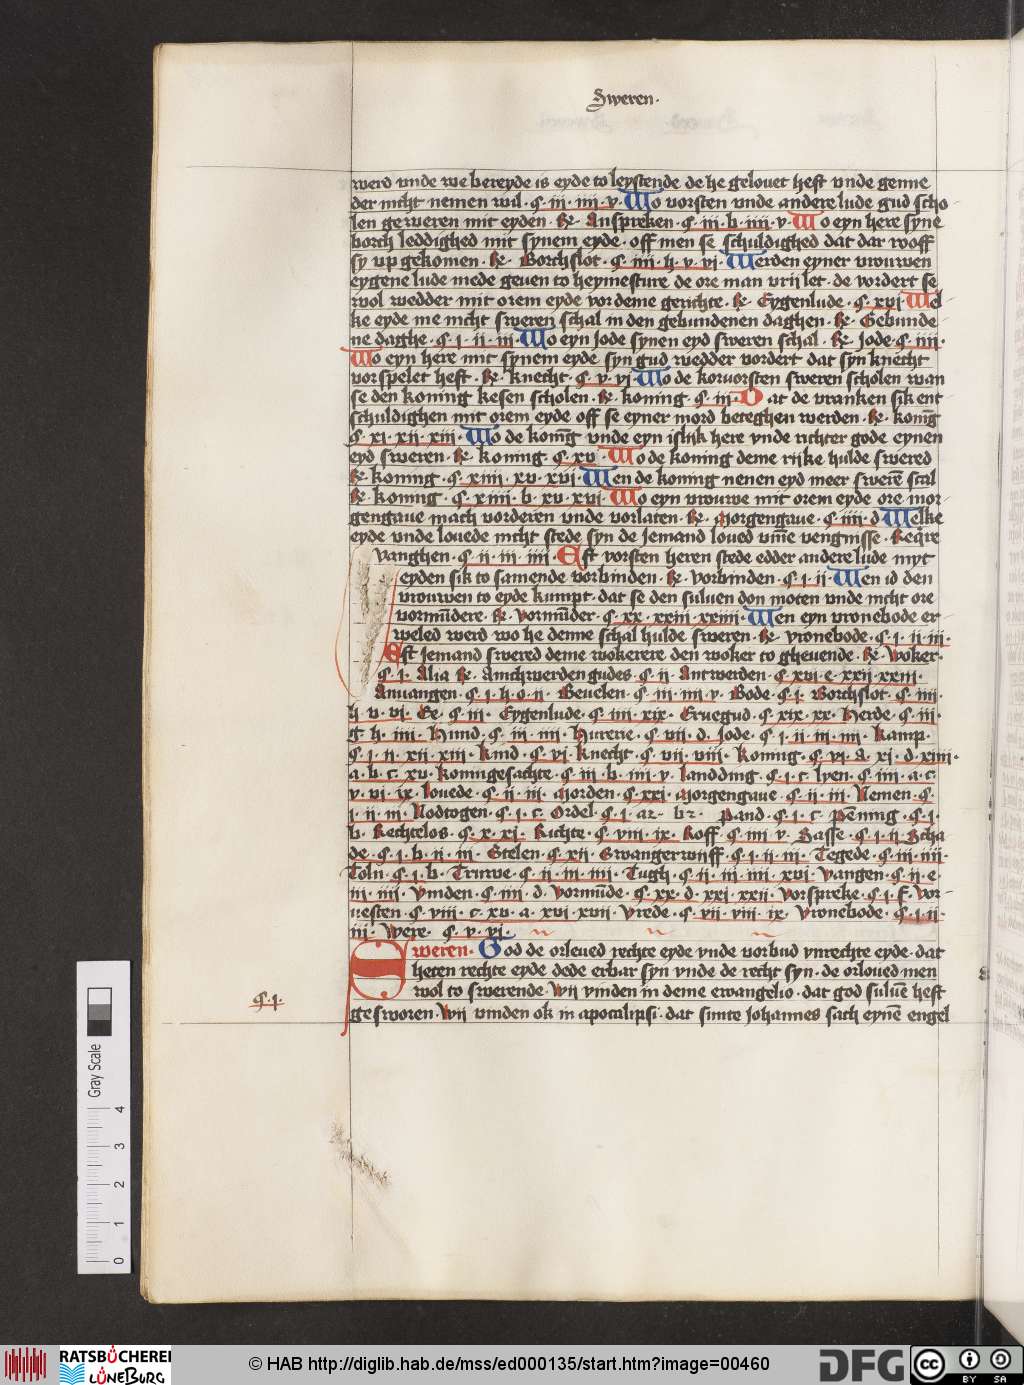 Sweren·
werd vnde we bereyde is eyde to leystende de he gelouet heft vnde genne
der nicht nemen wil· ꝯ· iii· iiii· v· Wo vorsten vnde andere lude gud scho
len geweren mit eyden· Re· Anspreken· ꝯ· iii· b· iiii· v· Wo eyn here syne
borch leddighed mit synem eyde· off men se schuldighed dat dar woff
sy vp gekomen· Re· Borchslot· ꝯ· iiii· h· v· vi· Werden eyner vrouwen
eygene lude mede geuen to heymesture de ore man vrii let· de vordert se
wol wedder mit orem eyde vor deme gerichte· Re· Eygenlude· ꝯ· xvi· Wel
ke eyde me nicht sweren schal in den gebundenen daghen· Re· Gebunde
ne daghe· ꝯ· i· ii· iii· Wo eyn Jode synen eyd sweren schal· Re· Jode· ꝯ· iiii·
Wo eyn here mit synem eyde syn gud wedder vordert dat syn knecht
vorspelet heft· Re· knecht· ꝯ· v· vi· Wo de korvorsten sweren scholen wan
se den koning kesen scholen· Re· koning· ꝯ· iii· Dat de vranken sik ent
schuldighen mit orem eyde off se eyner mord beteghen werden· Re· koniḡ
ꝯ· xi· xii· xiii· Wo de koniḡ vnde eyn islik here vnde richter gode eynen
eyd sweren· Re· koning· ꝯ· xv· Wo de koning deme riike hulde swered
Re· koning· ꝯ· xiiii· xv· xvi· Wen de koning nenen eyd meer swerē scal
Re· koning· ꝯ· xiiii· b· xv· xvi· Wo eyn vrouwe mit orem eyde ore mor
gengaue mach vorderen vnde vorlaten· Re· Morgengaue· ꝯ· iiii· d· Welke
eyde vnde louede nicht stede syn de Jemand loued vm̄e vengnisse· Reqire
vanghen· ꝯ· ii· iii· iiii· Est vorsten heren stede edder andere lude myt
eyden sik to samende vorbinden· Re· vorbinden· ꝯ· i· ii· Wen id den
vrouwen to eyde kumpt· dat se den suluen don moten vnde nicht ore
vormūdere· Re· vormūder· ꝯ· xx· xxiii· xxiiii· Wen eyn vronebode er
weled werd wo he denne schal hulde sweren· Re· vronebode· ꝯ· i· ii· iii·
Est Jemand swered deme wokerere den woker to gheuende· Re· woker·
ꝯ· i· Alia Re· Amchwerdengudes· ꝯ· ii· Antwerden· ꝯ· xvi· e· xxii· xxiii·
Anuangen· ꝯ· i· h· o· ii· Beuelen· ꝯ· iii· iiii· v· Bode· ꝯ· i· Borchslot· ꝯ· iiii·
h· v· vi· Ee· ꝯ· iii· Eygenlude· ꝯ· iiii· xix· Eruegud· ꝯ· xix· xx· Herde· ꝯ· iii·
g· h· iiii· Hund· ꝯ· iii· iiii· Hurerie· ꝯ· vii· d· Jode· ꝯ· i· ii· iii· iiii· Kamp·
ꝯ· i· ii· xii· xiii· Kind· ꝯ· vi· Knecht· ꝯ· vii· viii· Koning· ꝯ· vi· a· xi· d· xiiii·
a· b· c· xv· Koningesachte· ꝯ· iii· b· iiii· v· Landding· ꝯ· i· c· Lyen· ꝯ· iiii· a· c·
v· vi· ix· Louede· ꝯ· ii· iii· Morden· ꝯ· xxi· Morgengaue· ꝯ· ii· iii· Nemen· ꝯ·
i· ii· iii· Nodtogen· ꝯ· i· c· Ordel· ꝯ· i· a2· b2· Pand· ꝯ· i· c· Pēnig· ꝯ· i·
b· Rechtelos· ꝯ· x· xi· Richte· ꝯ· viii· ix· Roff· ꝯ· iiii· v· Sasse· ꝯ· i· ii· Scha
de· ꝯ· i· b· ii· iii· Stelen· ꝯ· xii· Swangerwiiff· ꝯ· i· ii· iii· Tegede· ꝯ· iii· iiii·
Toln· ꝯ· i· b· Truwe· ꝯ· ii· iii· iiii· Tugh· ꝯ· ii· iii· iiii· xvi· Vangen· ꝯ· ii· e·
iii· iiii· Vinden· ꝯ· iiii· d· Vormūde· ꝯ· xx· d· xxi· xxii· Vorspreke· ꝯ· i· f· Vor
uesten· ꝯ· viii· c· xv· a· xvi· xvii· Vrede· ꝯ· vii· viii· ix· Vronebode· ꝯ· i· ii·
iii· Were· ꝯ· v· vi·
Sweren· God de orleued rechte eyde vnde vorbud vnrechte eyde· dat
heten rechte eyde dede erbar syn vnde de recht syn· de orloued men
wol to swerende· Wii vinden in deme ewangelio· dat god suluē heft
ꝯ· i·
gesworen· Wii vinden ok in apocalipsi· dat sunte Johannes sach eynē engel
Gray Scale
0 1 2 3 4
RATSBÜCHEREI
LÜNEBURG
© HAB http://diglib.hab.de/mss/ed000135/start.htm?image=00460
DFG
cc
BY SA